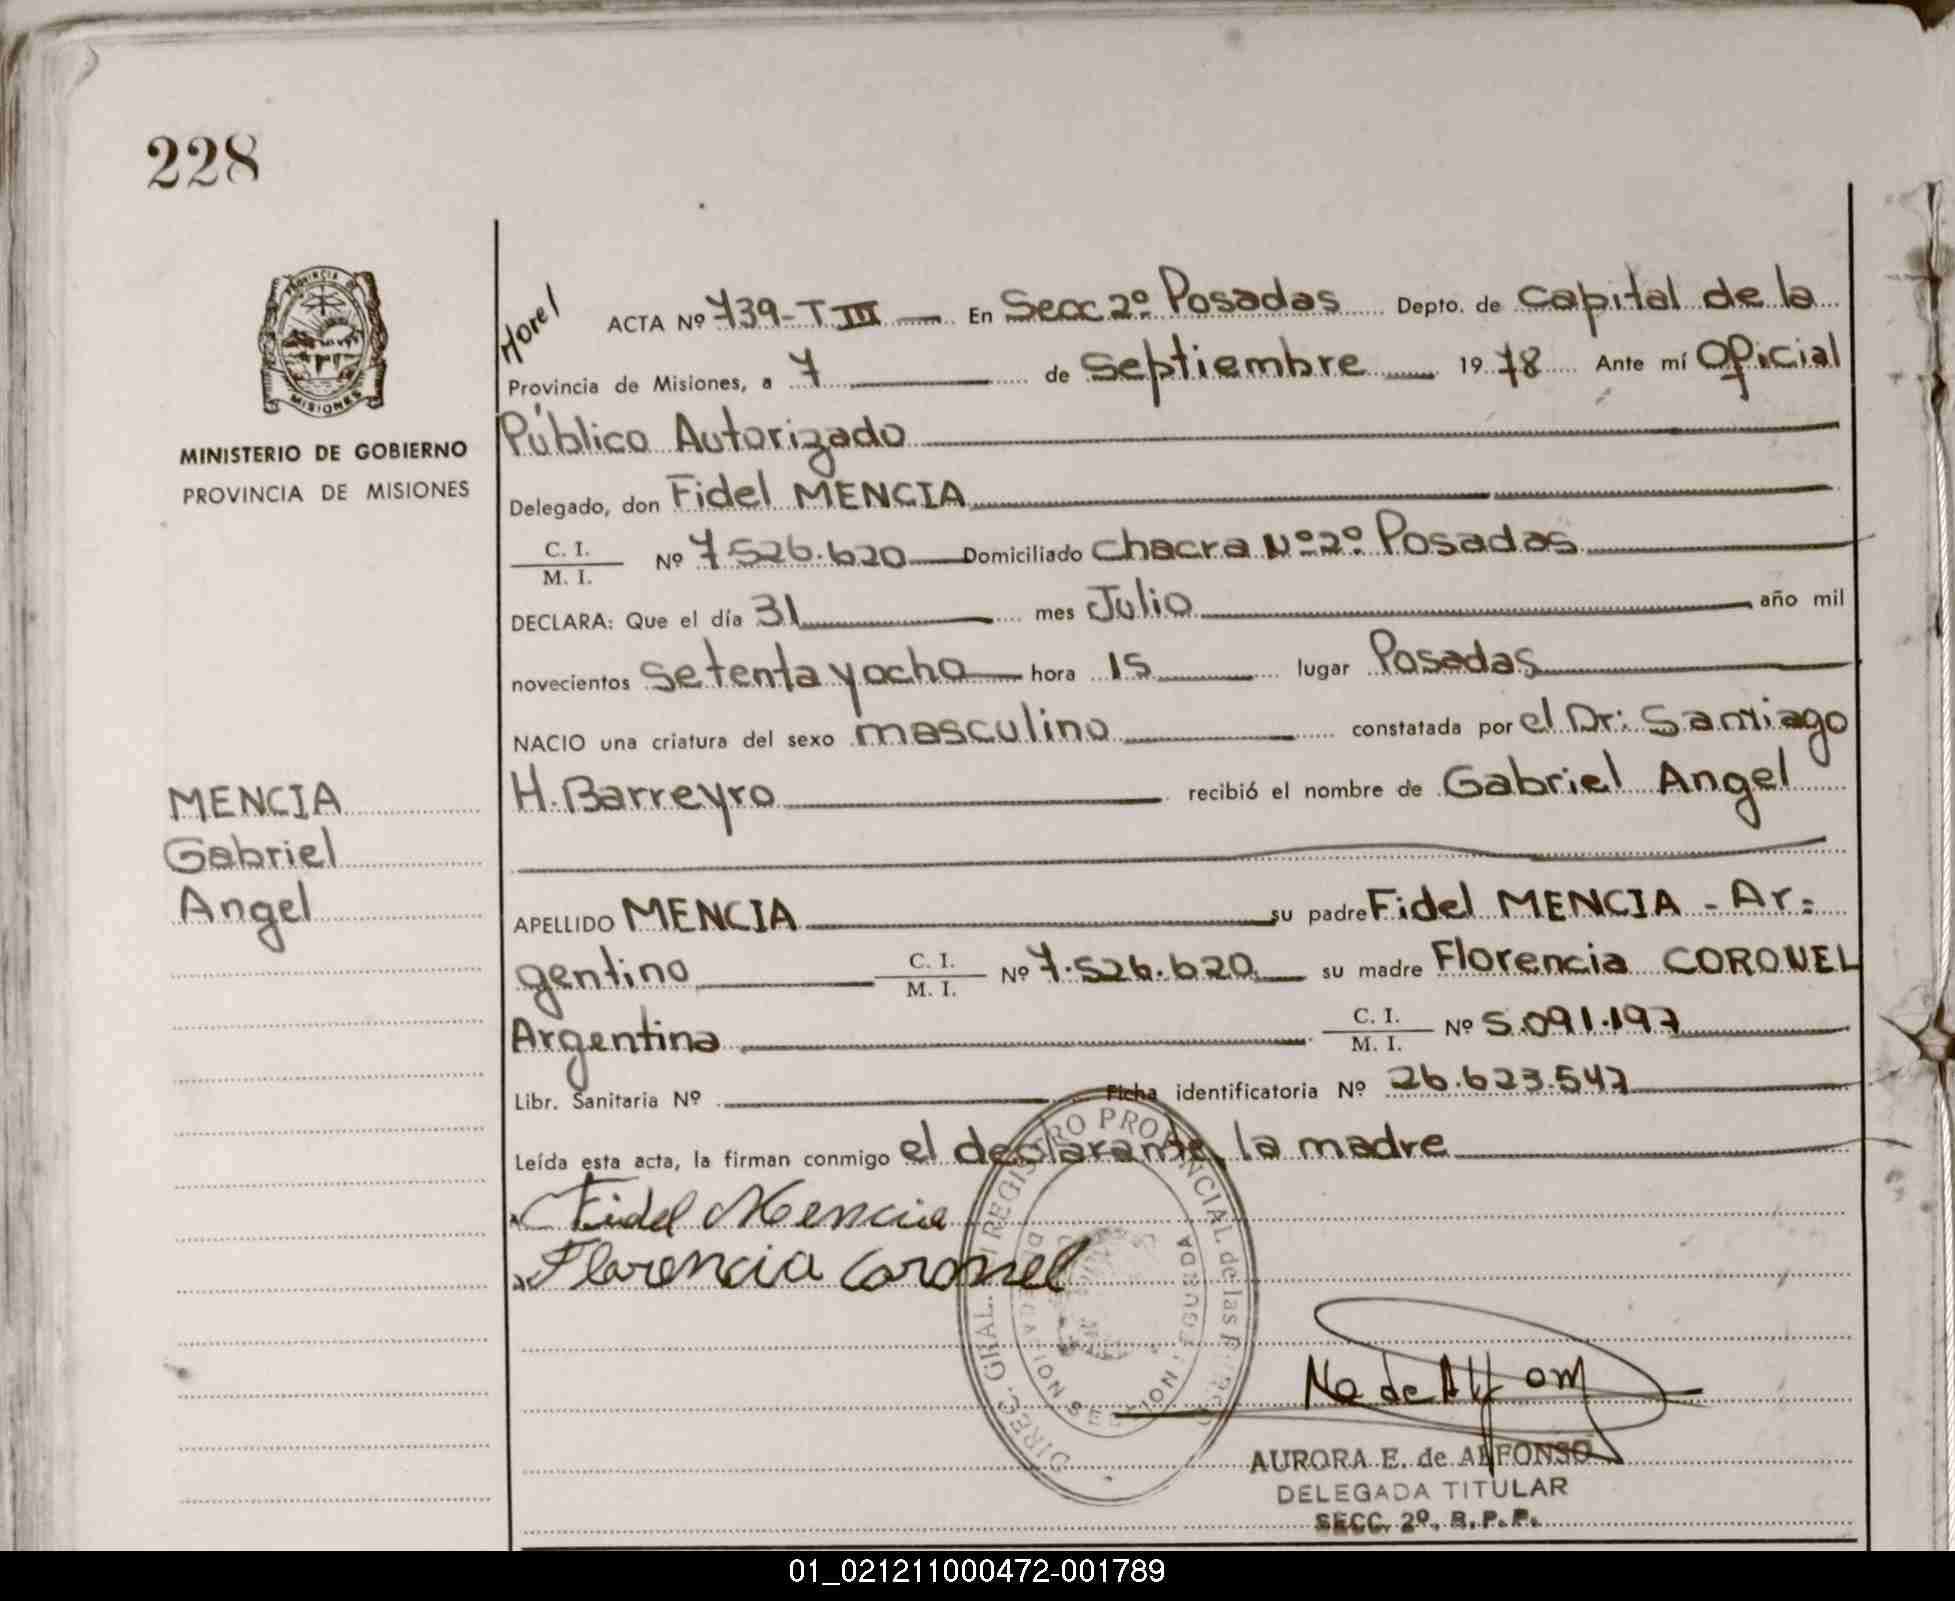 228
PROVINCIA DE
MISIONES
MINISTERIO DE GOBIERNO
PROVINCIA DE MISIONES
MENCIA
Gabriel
Angel
Horel
ACTA Nº 739-T III En Secc 2º Posadas Depto. de Capital de la
Provincia de Misiones, a 7 de Septiembre 1978 Ante mí Oficial
Público Autorizado
Delegado, don Fidel MENCIA
C. I.
M. I. Nº 7.526.620 Domiciliado Chacra Nº 2º Posadas
DECLARA: Que el día 31 mes Julio año mil
novecientos setenta y ocho hora 15 lugar Posadas
NACIO una criatura del sexo masculino constatada por el Dr: Santiago
H. Barreyro recibió el nombre de Gabriel Angel
APELLIDO MENCIA su padre Fidel MENCIA - Ar=
gentino C. I.
M. I. Nº 7.526.620 su madre Florencia CORONEL
Argentina C. I.
M. I. Nº 5.091.197
Libr. Sanitaria Nº Ficha identificatoria Nº 26.623.547
Leída esta acta, la firman conmigo el declarante, la madre
Fidel Mencia
Florencia Coronel
DIREC. GRAL. REGISTRO PROVINCIAL de las
DELEGACION SECCION SEGUNDA
AURORA E. de ALFONSO
DELEGADA TITULAR
SECC. 2º. R. P. P.
01_021211000472-001789